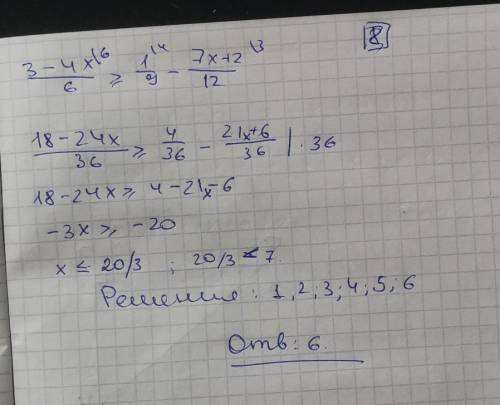 8
(3 - 4x)/6 \6 ≥ 1/9 \4 - (7x+2)/12 \3
(18 - 24x)/36 ≥ 4/36 - (21x+6)/36 | · 36
18 - 24x ≥ 4 - 21x - 6
-3x ≥ -20
x ≤ 20/3 ; 20/3 < 7
Решения : 1, 2 ; 3 ; 4 ; 5 ; 6
Отв : 6.